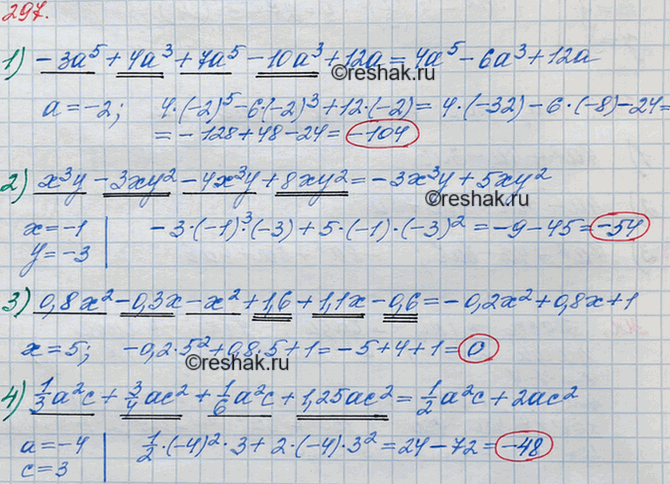 297.
1) -3a⁵ + 4a³ + 7a⁵ - 10a³ + 12a = 4a⁵ - 6a³ + 12a
©reshak.ru
a = -2; 4·(-2)⁵ - 6(-2)³ + 12·(-2) = 4·(-32) - 6·(-8) - 24 =
= -128 + 48 - 24 = -104
2) x³y - 3xy² - 4x³y + 8xy² = -3x³y + 5xy²
x = -1 | -3·(-1)³·(-3) + 5·(-1)·(-3)² = -9 - 45 = -54
y = -3
©reshak.ru
3) 0,8x² - 0,3x - x² + 1,6 + 1,1x - 0,6 = -0,2x² + 0,8x + 1
x = 5; -0,2·5² + 0,8·5 + 1 = -5 + 4 + 1 = 0
©reshak.ru
4) 1/3 a²c + 3/4 ac² + 1/6 a²c + 1,25ac² = 1/2 a²c + 2ac²
a = -4 | 1/2·(-4)²·3 + 2·(-4)·3² = 24 - 72 = -48
c = 3